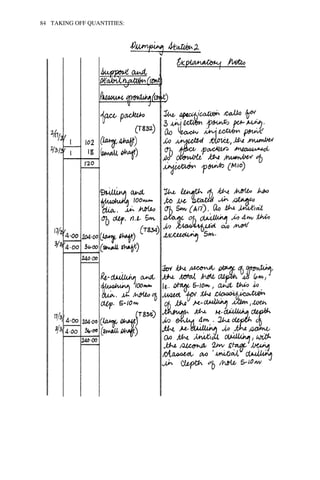 84 TAKING OFF QUANTITIES:
Pumping Station 2
Explanatory Notes
Support and
Stabilization (cont)
Pressure grouting (cont)
Face packers
(T832)
1 102 (large shaft)
1 18 (small shaft)
120
The specification calls for
3 injection points per ring.
As each injection point
is injected twice, the number
of face packers measured
is double the number of
injection points (M10)
Drilling and
flushing 100mm
dia. in holes
of dep. n.e. 5m
(T834)
4.00 204.00 (large shaft)
4.00 36.00 (small shaft)
240.00
The length of the holes has
to be stated in stages
of 5m (A17). As the initial
stage of drilling is 4m this
is classified as not
exceeding 5m.
Re-drilling and
flushing 100mm
dia. in holes of
dep. 5-10m
(T836)
4.00 204.00 (large shaft)
4.00 36.00 (small shaft)
240.00
For the second stage of grouting,
the total hole depth is 6m,
ie. stage 5-10m, and this is
used for the classification
of the re-drilling item, even
though the re-drilling depth
is only 4m. The depth of
the re-drilling is the same
as the initial drilling, with
the second 2m stage being
classed as initial drilling
in depth of hole 5-10m